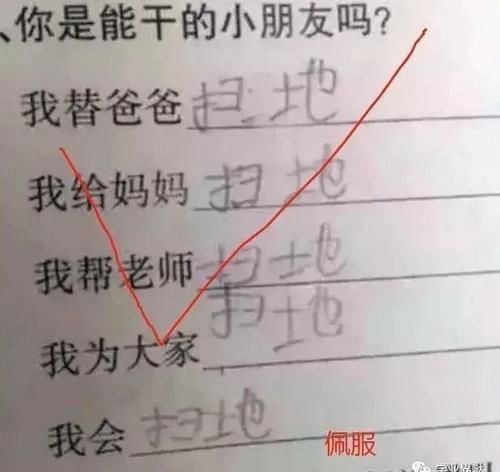 、你是能干的小朋友吗?
我替爸爸 扫地
我给妈妈 扫地
我帮老师 扫地
我为大家 扫地
我会 扫地
佩服